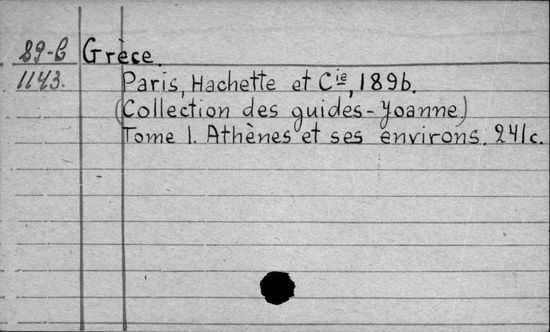 89-б Grèce.
1143. Paris, Hachette et Cie, 1896.
(Collection des guides-Joanne)
Tome 1. Athènes et ses environs. 241c.